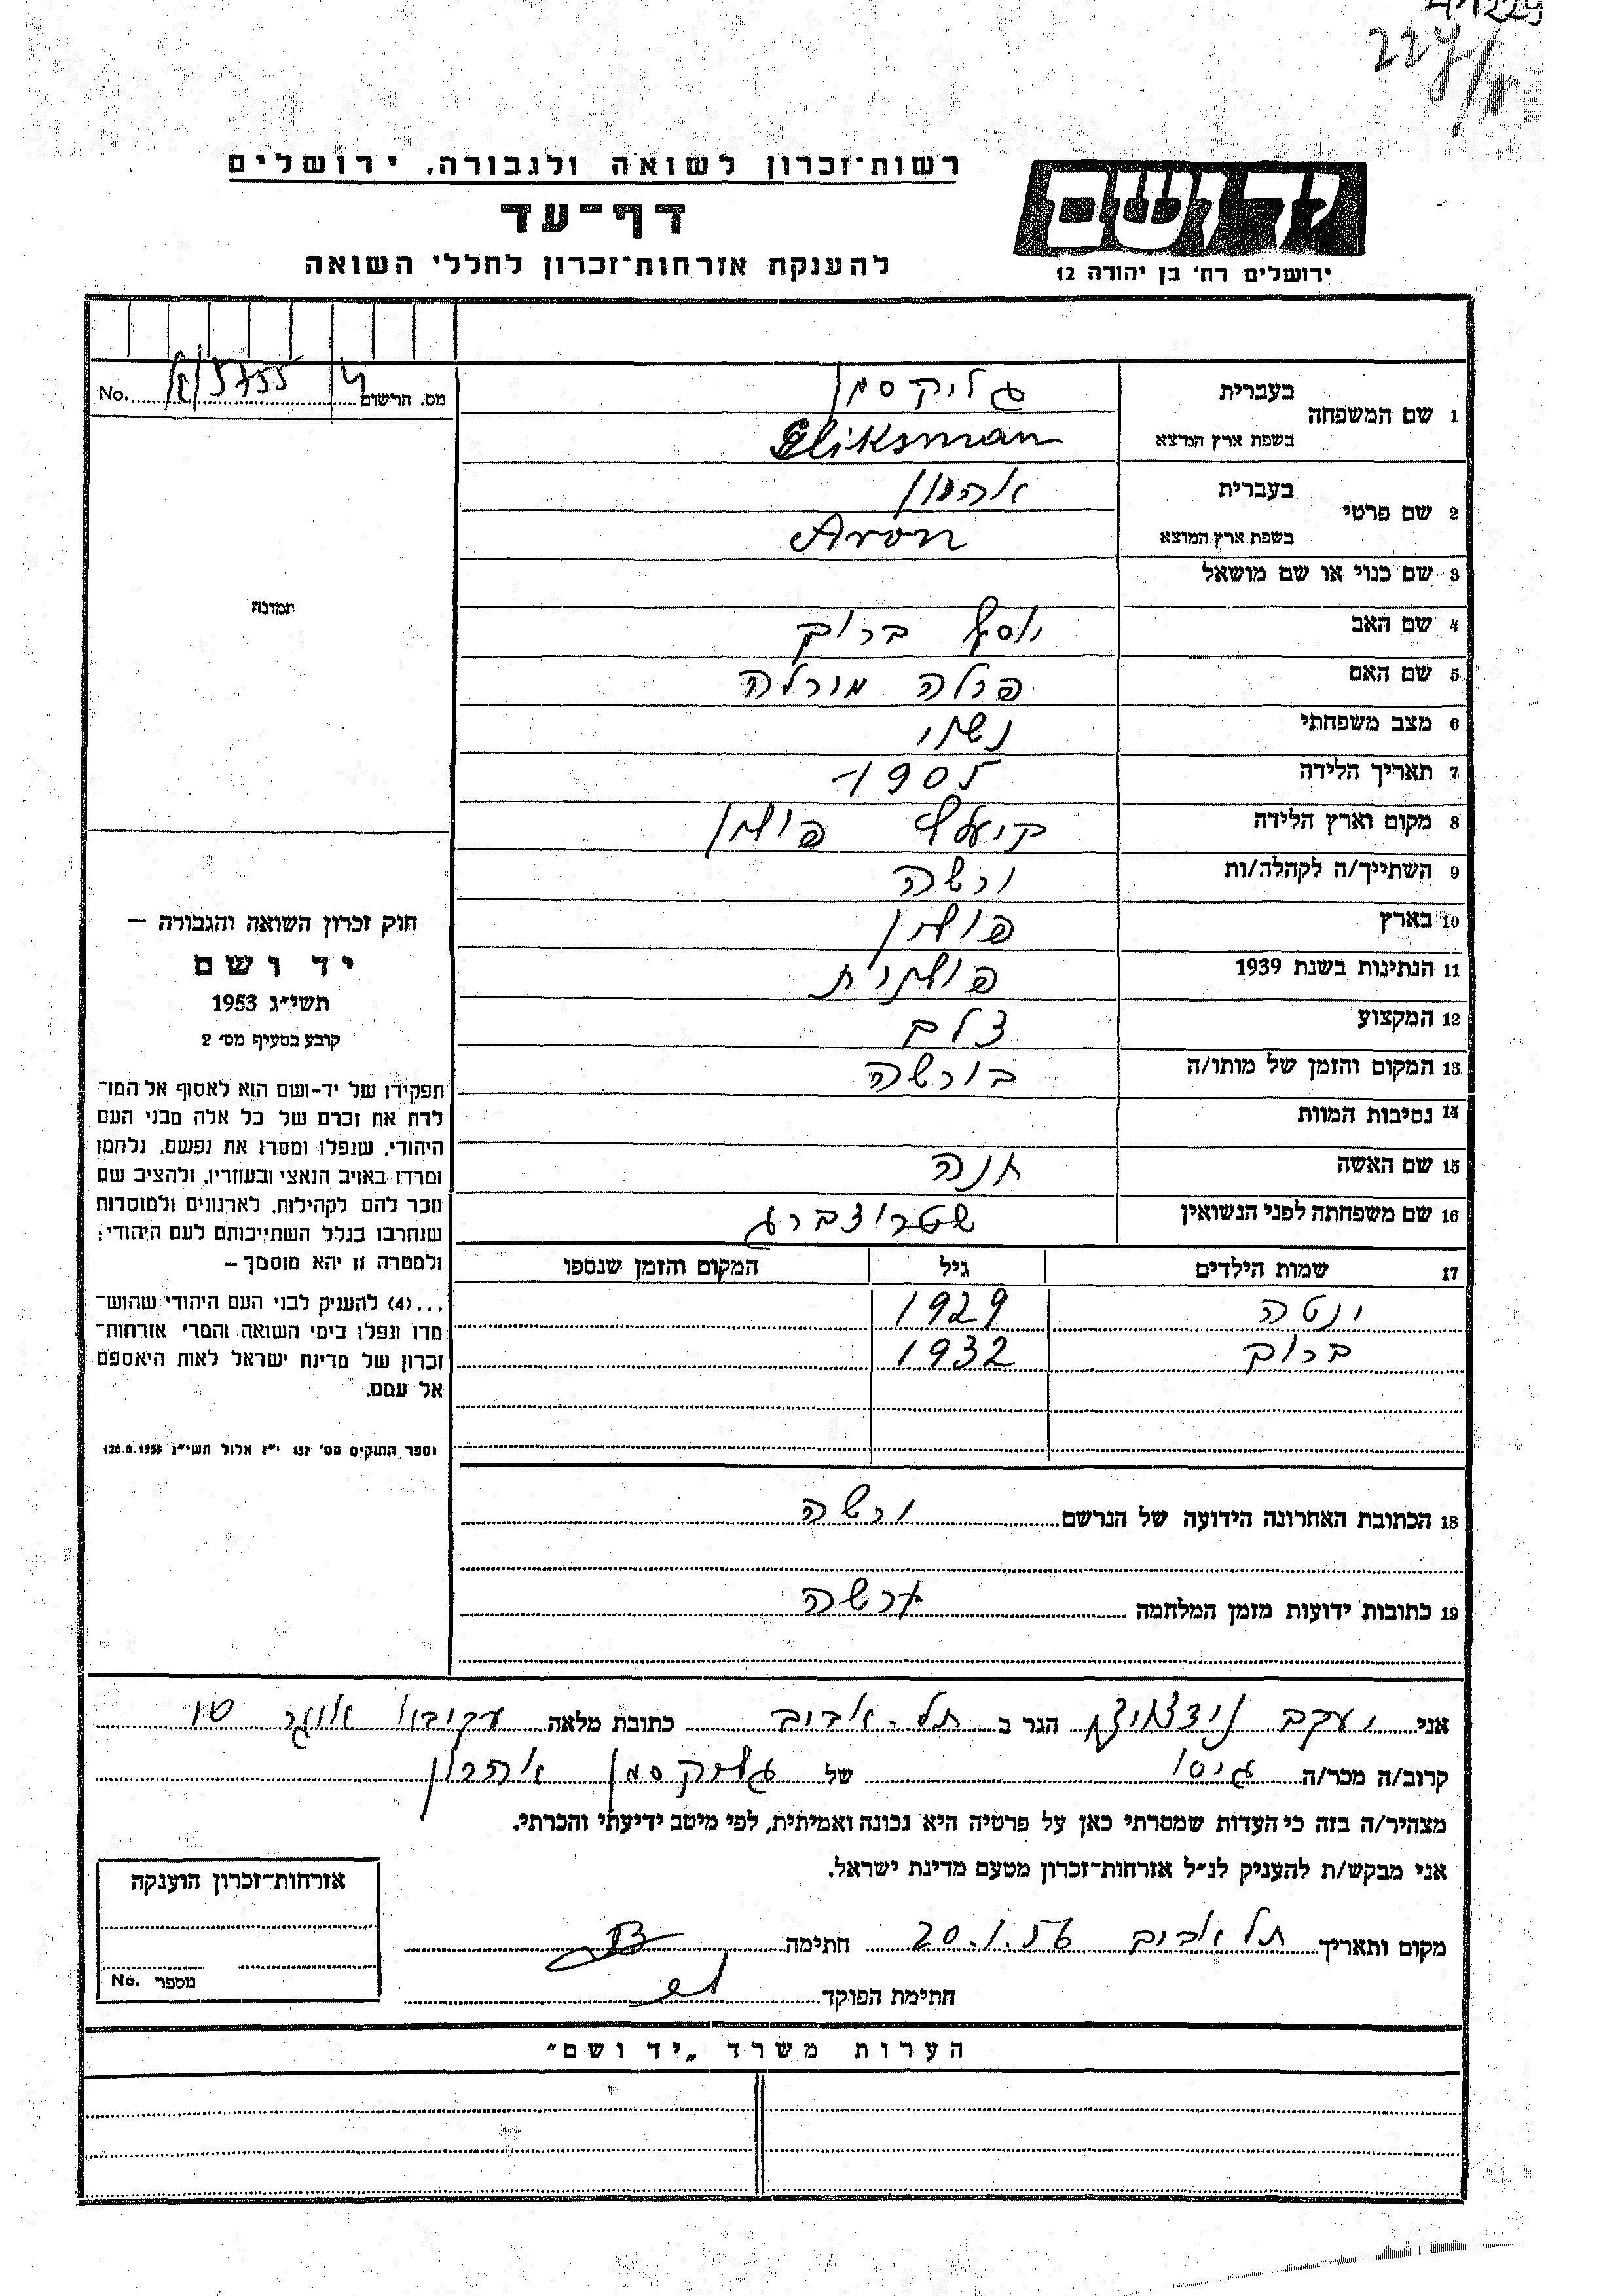 227/
רשות־זכרון לשואה ולגבורה, ירושלים
דף־עד
להענקת אזרחות־זכרון לחללי השואה
יד ושם
ירושלים רח׳ בן יהודה 12
מס. הרשום No.
1 שם המשפחה בעברית גליקסמן
בשפת ארץ המוצא Gliksman
2 שם פרטי בעברית אהרון
בשפת ארץ המוצא Aron
3 שם כנוי או שם מושאל
4 שם האב יוסף ברוך
5 שם האם פרלה
6 מצב משפחתי נשוי
7 תאריך הלידה 1905
8 מקום וארץ הלידה קיעלץ פולין
9 השתייך/ה לקהלה/ות ורשה
10 בארץ פולין
11 הנתינות בשנת 1939 פולנית
12 המקצוע צלם
13 המקום והזמן של מותו/ה בורשה
14 נסיבות המוות
15 שם האשה חנה
16 שם משפחתה לפני הנשואין
17 שמות הילדים גיל המקום והזמן שנספו
ינטה 1929
ברוך 1932
18 הכתובת האחרונה הידועה של הנרשם ורשה
19 כתובות ידועות מזמן המלחמה ורשה
תמונה
חוק זכרון השואה והגבורה —
יד ושם
תשי״ג 1953
קובע בסעיף מס׳ 2
תפקידו של יד-ושם הוא לאסוף אל המו־
לדת את זכרם של כל אלה מבני העם
היהודי, שנפלו ומסרו את נפשם, נלחמו
ומרדו באויב הנאצי ובעוזריו, ולהציב שם
וזכר להם לקהילות, לארגונים ולמוסדות
שנחרבו בגלל השתייכותם לעם היהודי;
ולמטרה זו יהא מוסמך —
...(4) להעניק לבני העם היהודי שהוש־
מדו ונפלו בימי השואה והמרי אזרחות־
זכרון של מדינת ישראל לאות היאספם
אל עמם.
(ספר החוקים מס׳ 132 י״ז אלול תשי״ג 28.8.1953)
אני יעקב הגר ב תל-אביב כתובת מלאה עקיבא איגר 10
קרוב/ה מכר/ה גיסו של גליקסמן אהרון
מצהיר/ה בזה כי העדות שמסרתי כאן על פרטיה היא נכונה ואמיתית, לפי מיטב ידיעתי והכרתי.
אני מבקש/ת להעניק לנ״ל אזרחות־זכרון מטעם מדינת ישראל.
מקום ותאריך תל אביב 20.1.56 חתימה
חתימת הפוקד
אזרחות־זכרון הוענקה
מספר No.
הערות משרד „יד ושם״